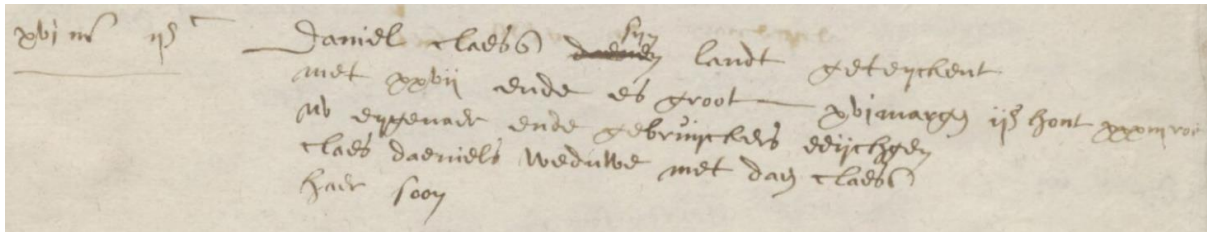 xvj mr ijꝭ c
Daniel claess syn landt geteyckent
met xxvij ende es groot xvj margen ijꝭ hont xxxiij roe
nv eygenaer ende gebruyckers
claes daeniels weduwe met dan claess
haer soon